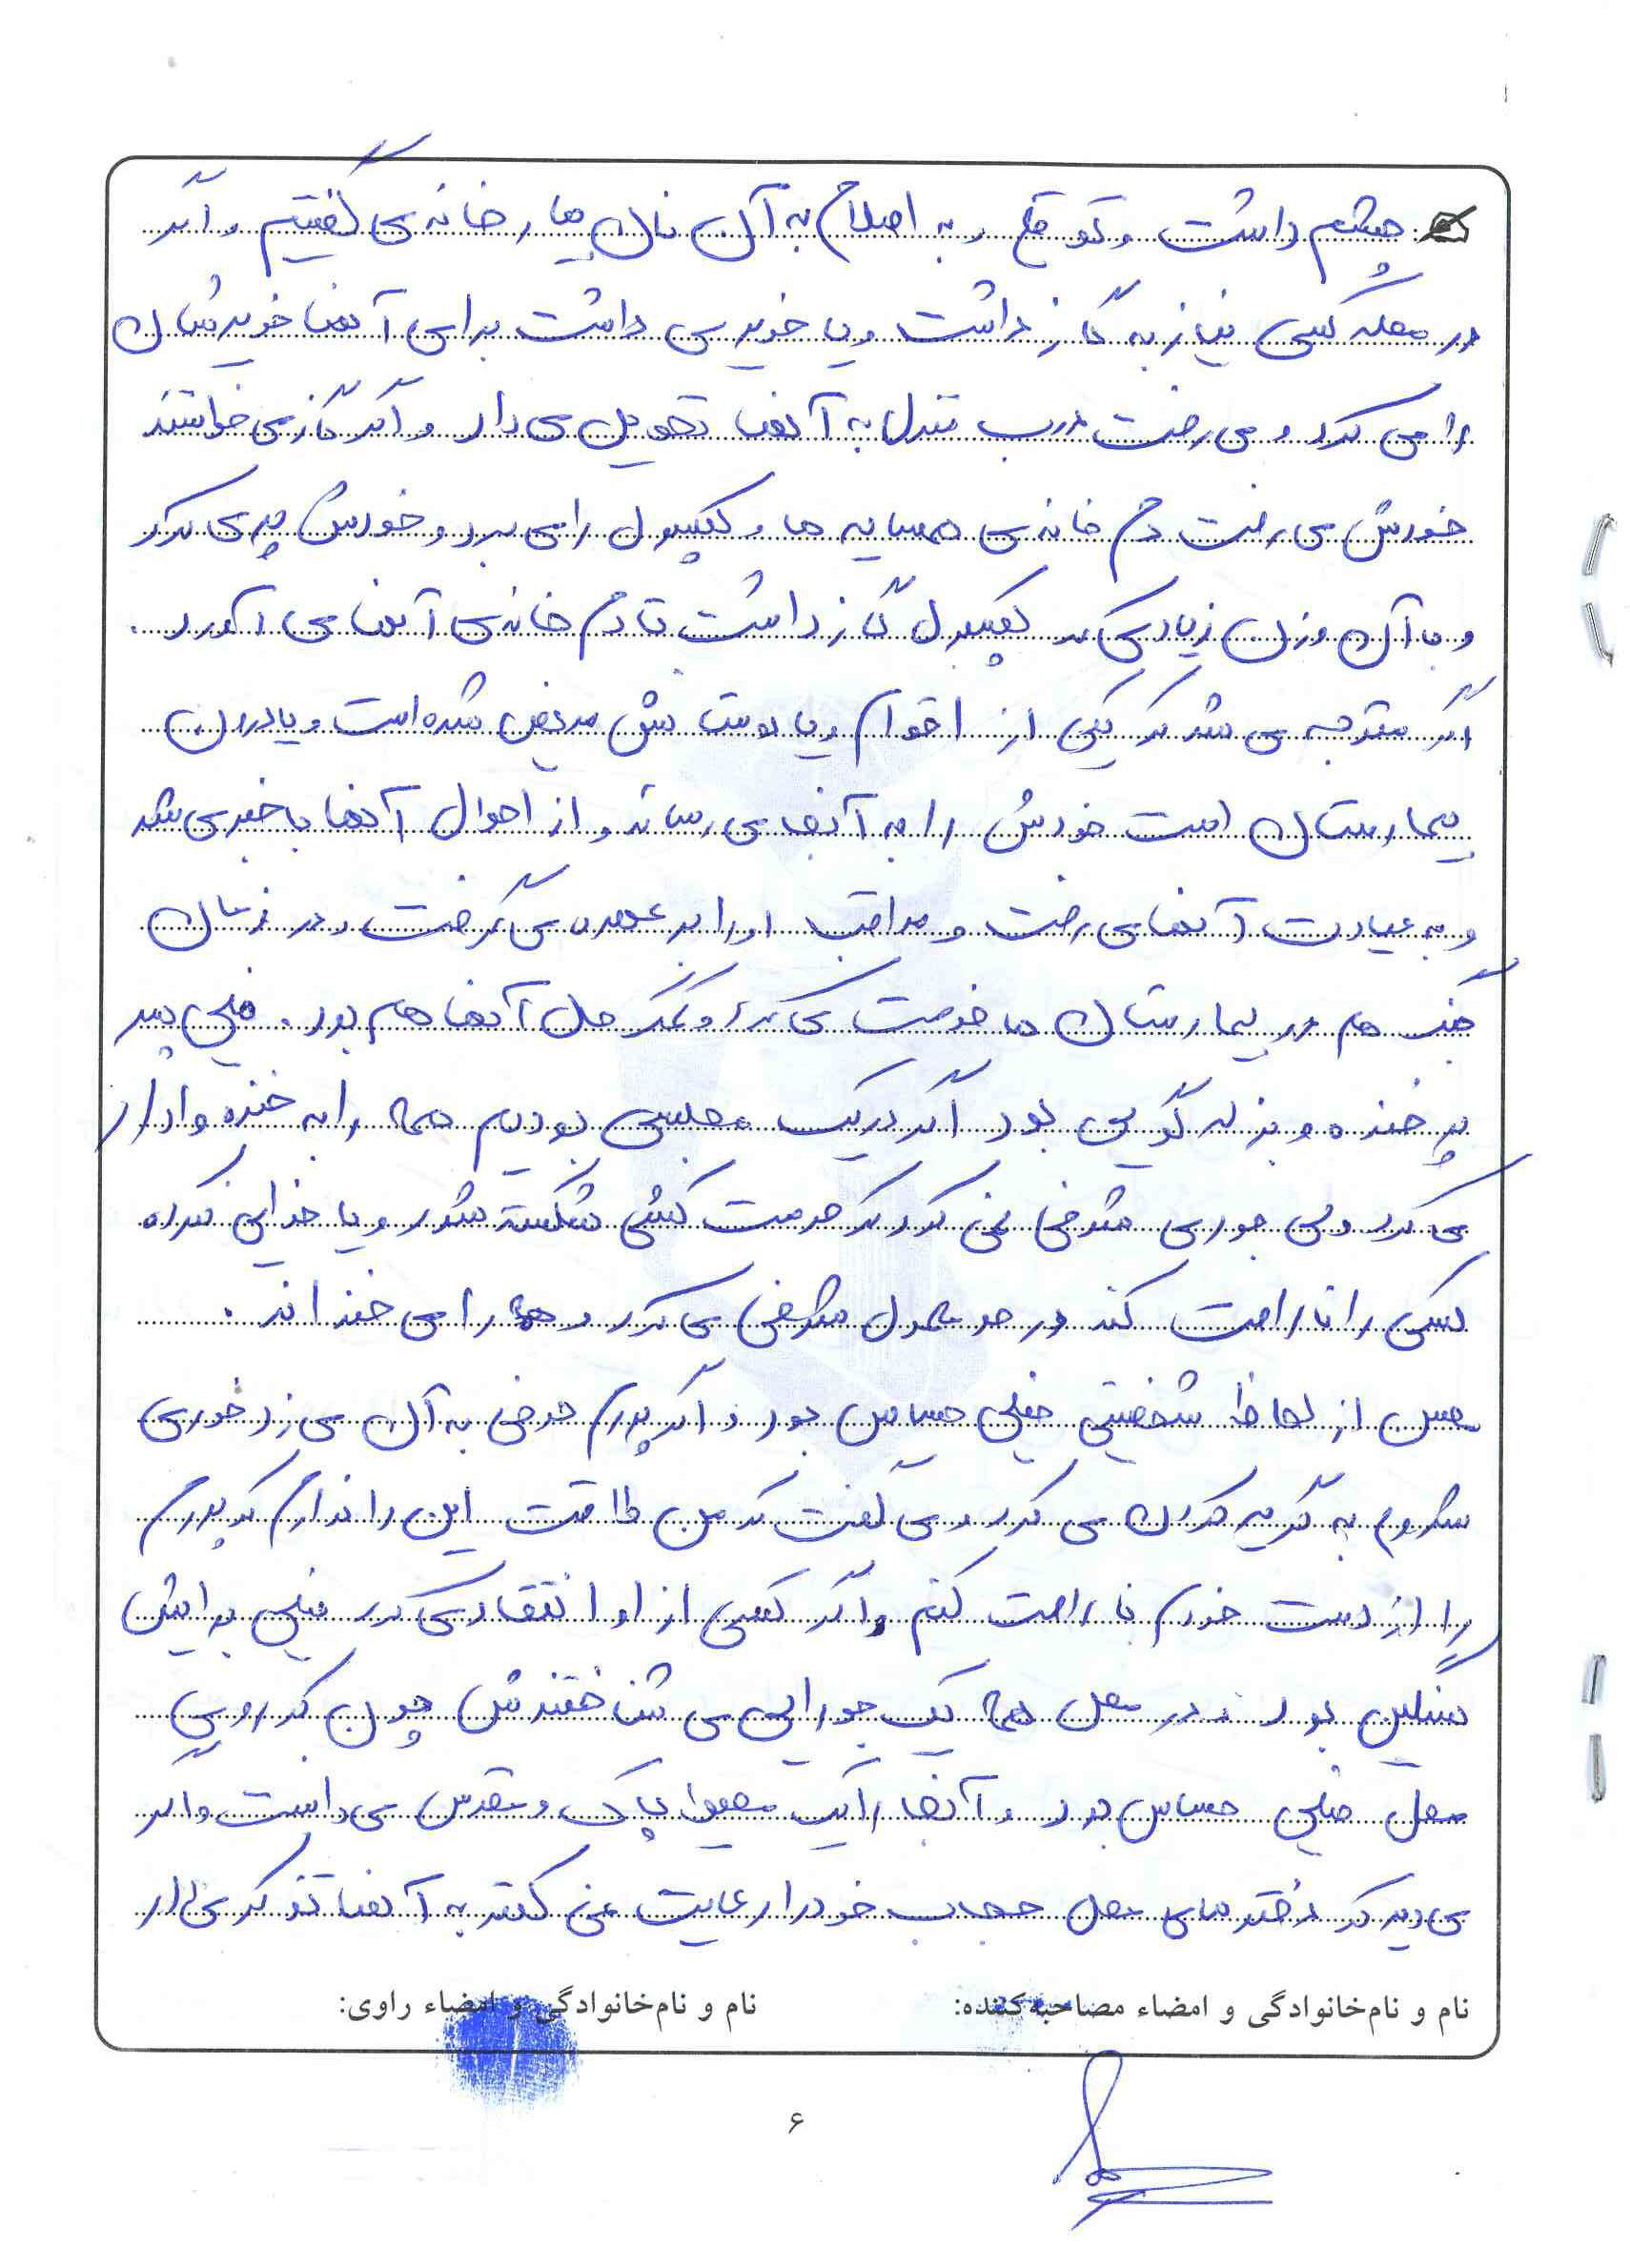 چشم داشت و توقع و به اصلاح به آن نان بیار خانه می گفتیم و اگر
در محله کسی نیاز به گاز داشت و یا خریدی داشت برای آنها خریدشان
را می کرد و می رفت درب منزل به آنها تحویل می داد و اگر گاز می خواستند
خودش می رفت دم خانه ی همسایه ها و کپسول را می برد و خودش پر می کرد
و با آن وزن زیادی که کپسول گاز داشت تا دم خانه ی آنها می آورد.
اگر متوجه می شد که یکی از اقوام و یا دوستانش مریض شده است و یا در
بیمارستان است خودش را به آنها می رساند و از احوال آنها با خبر می شد
و به عیادت آنها می رفت و مراقبت او را بر عهده می گرفت و در زمان
جنگ هم در بیمارستان ها خدمت می کرد و کمک حال آنها هم بود. خیلی پسر
پر خنده و بذله گویی بود اگر در یک مجلسی بودیم همه را به خنده وادار
می کرد ولی جوری شوخی نمی کرد که حرمت کسی شکسته شود و یا خدایی نکرده
کسی را ناراحت کند در حد معمول شوخی می کرد و همه را می خنداند.
از لحاظ شخصیتی خیلی حساس بود و اگر پدرم حرفی به آن می زد فوری
شروع به گریه کردن می کرد و می گفت که من طاقت این را ندارم که پدرم
را از دست خودم ناراحت کنم و اگر کسی از او انتقاد می کرد خیلی برایش
سنگین بود و در محل همه یک جورایی می شناختندش چون که روی
محل خیلی حساس بود و آنجا را یک محیط پاک و مقدس می دانست و اگر
می دید که دخترهای محل حجاب خود را رعایت نمی کنند به آنها تذکر می داد
نام و نام‌خانوادگی و امضاء مصاحبه‌کننده: نام و نام‌خانوادگی و امضاء راوی:
۶